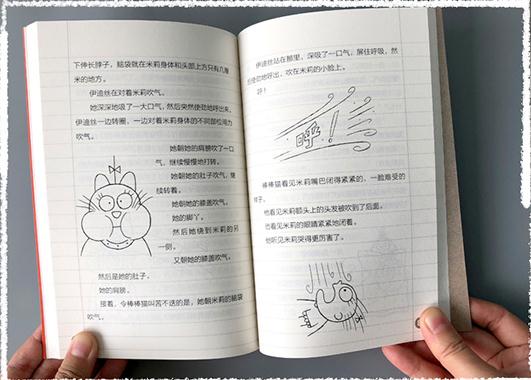 下伸长脖子，脑袋就在米莉身体和头部上方只有几厘
米的地方。
伊迪丝在对着米莉吹气。
她深深地吸了一大口气，然后突然使劲地呼出来。
伊迪丝一边转圈，一边对着米莉身体的不同部位用力
吹气。
她朝她的肩膀吹了一口
气，继续慢慢地打转。
她朝她的肚子吹气，继
续转着。
她朝她的膝盖吹气。
她的脚丫。
然后她绕到米莉的另
一侧。
又朝她的膝盖吹气。
然后是她的肚子。
她的肩膀。
接着，令棒棒猫叫苦不迭的是，她朝米莉的脑袋
吹气。
伊迪丝站在那里，深吸了一口气，屏住呼吸，然
后使劲地呼出，吹在米莉的小脸上。
呼！
呼！
棒棒猫看见米莉嘴巴闭得紧紧的，一脸难受的
样子。
他看见米莉额头上的头发被吹到了后面。
他看见米莉的眼睛紧紧地闭着。
他听见米莉哭得更厉害了。